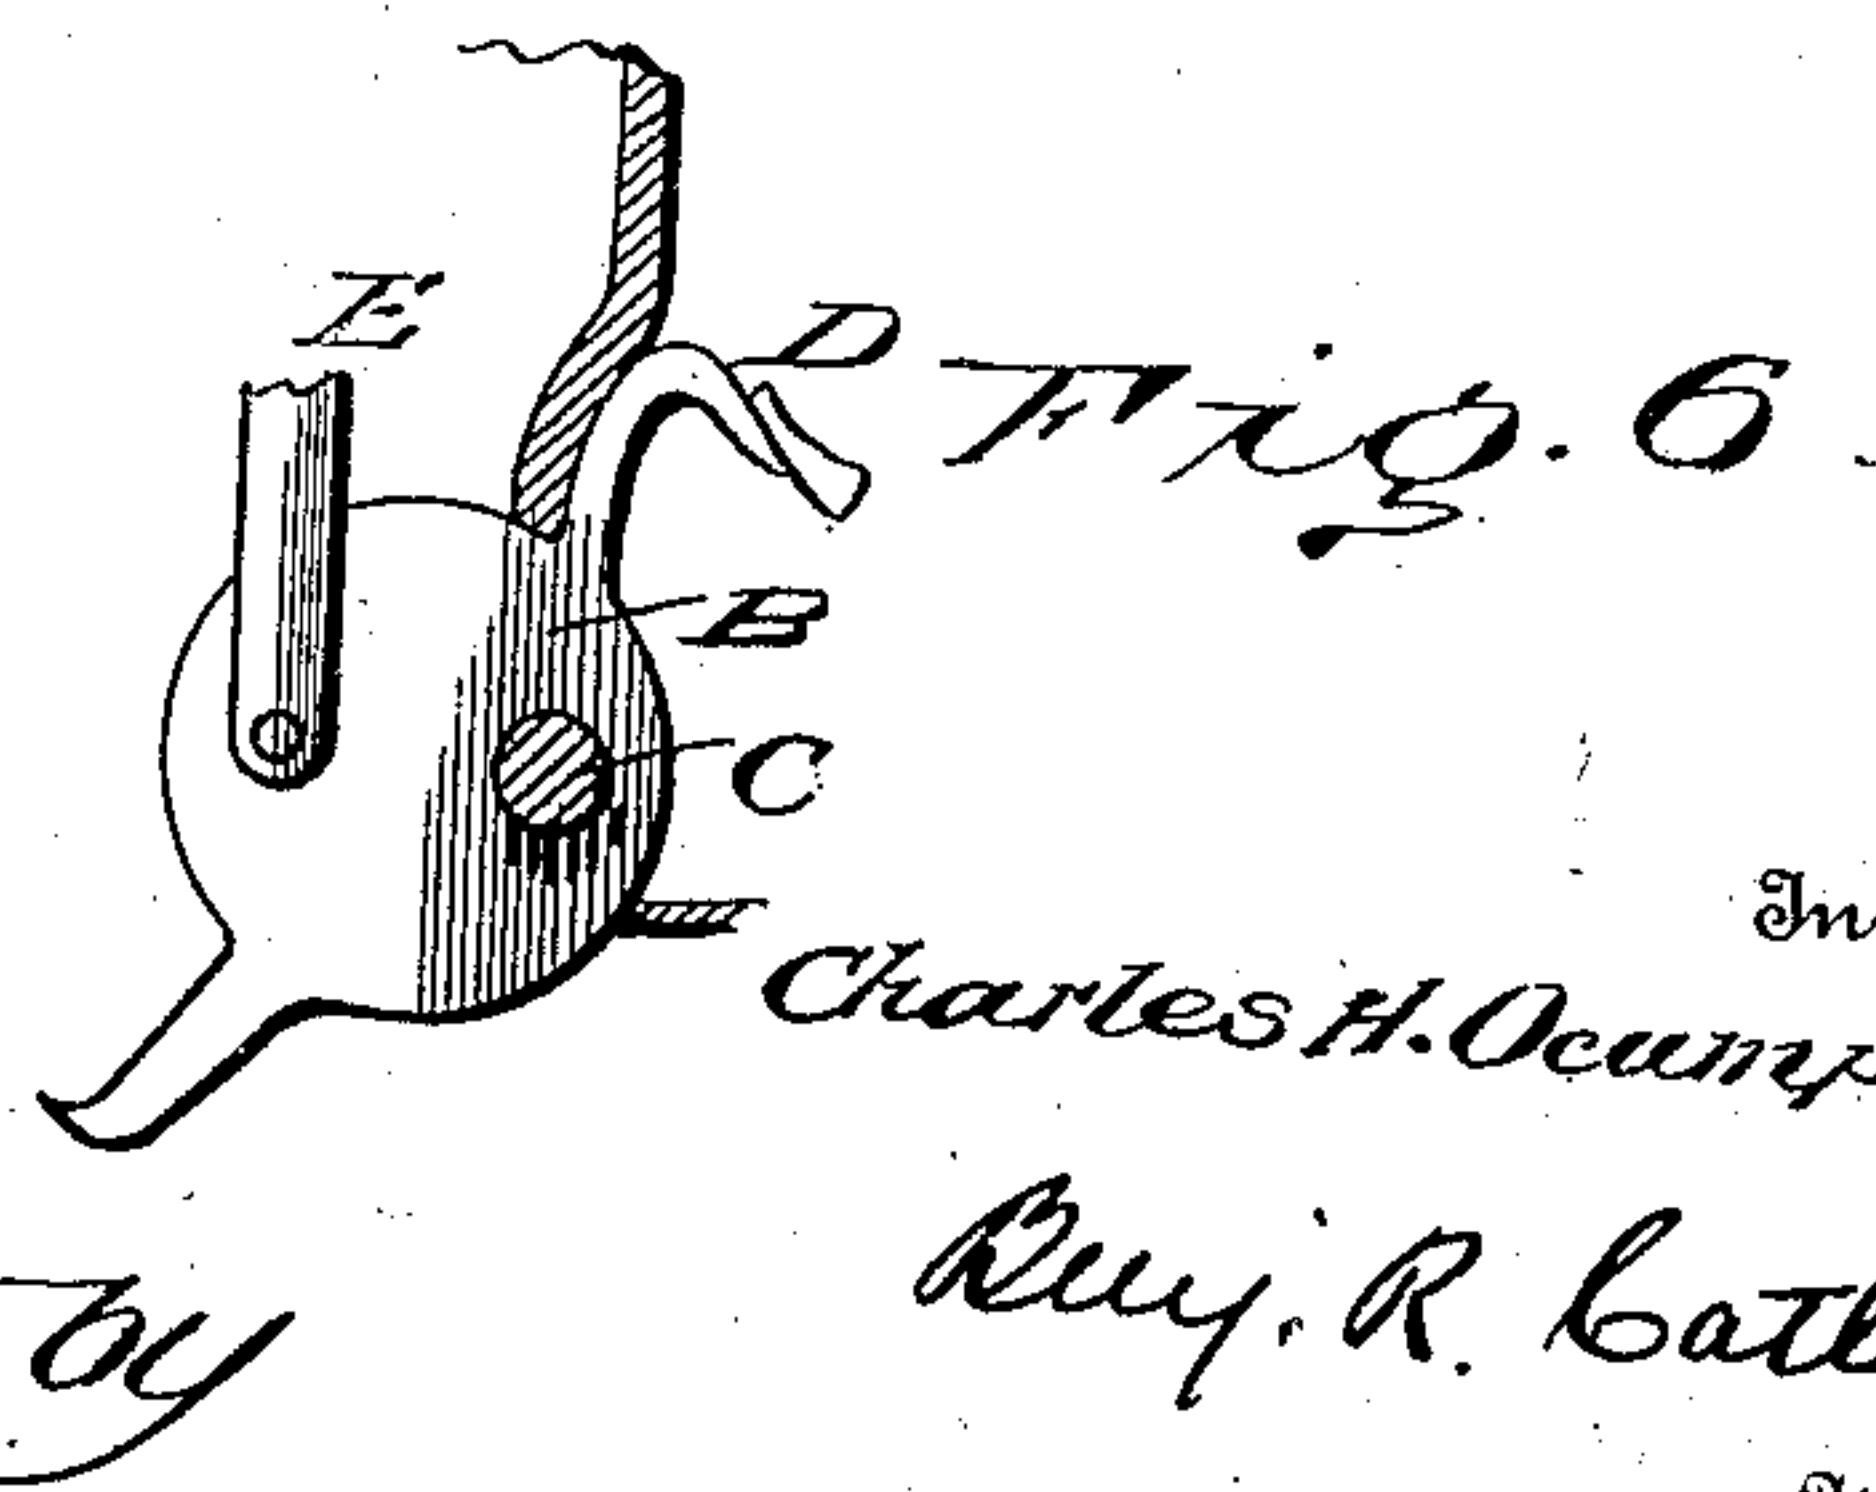 E'
D
Fig. 6.
B
C
In
Charles H. Ocump
Benj. R. Catl
By